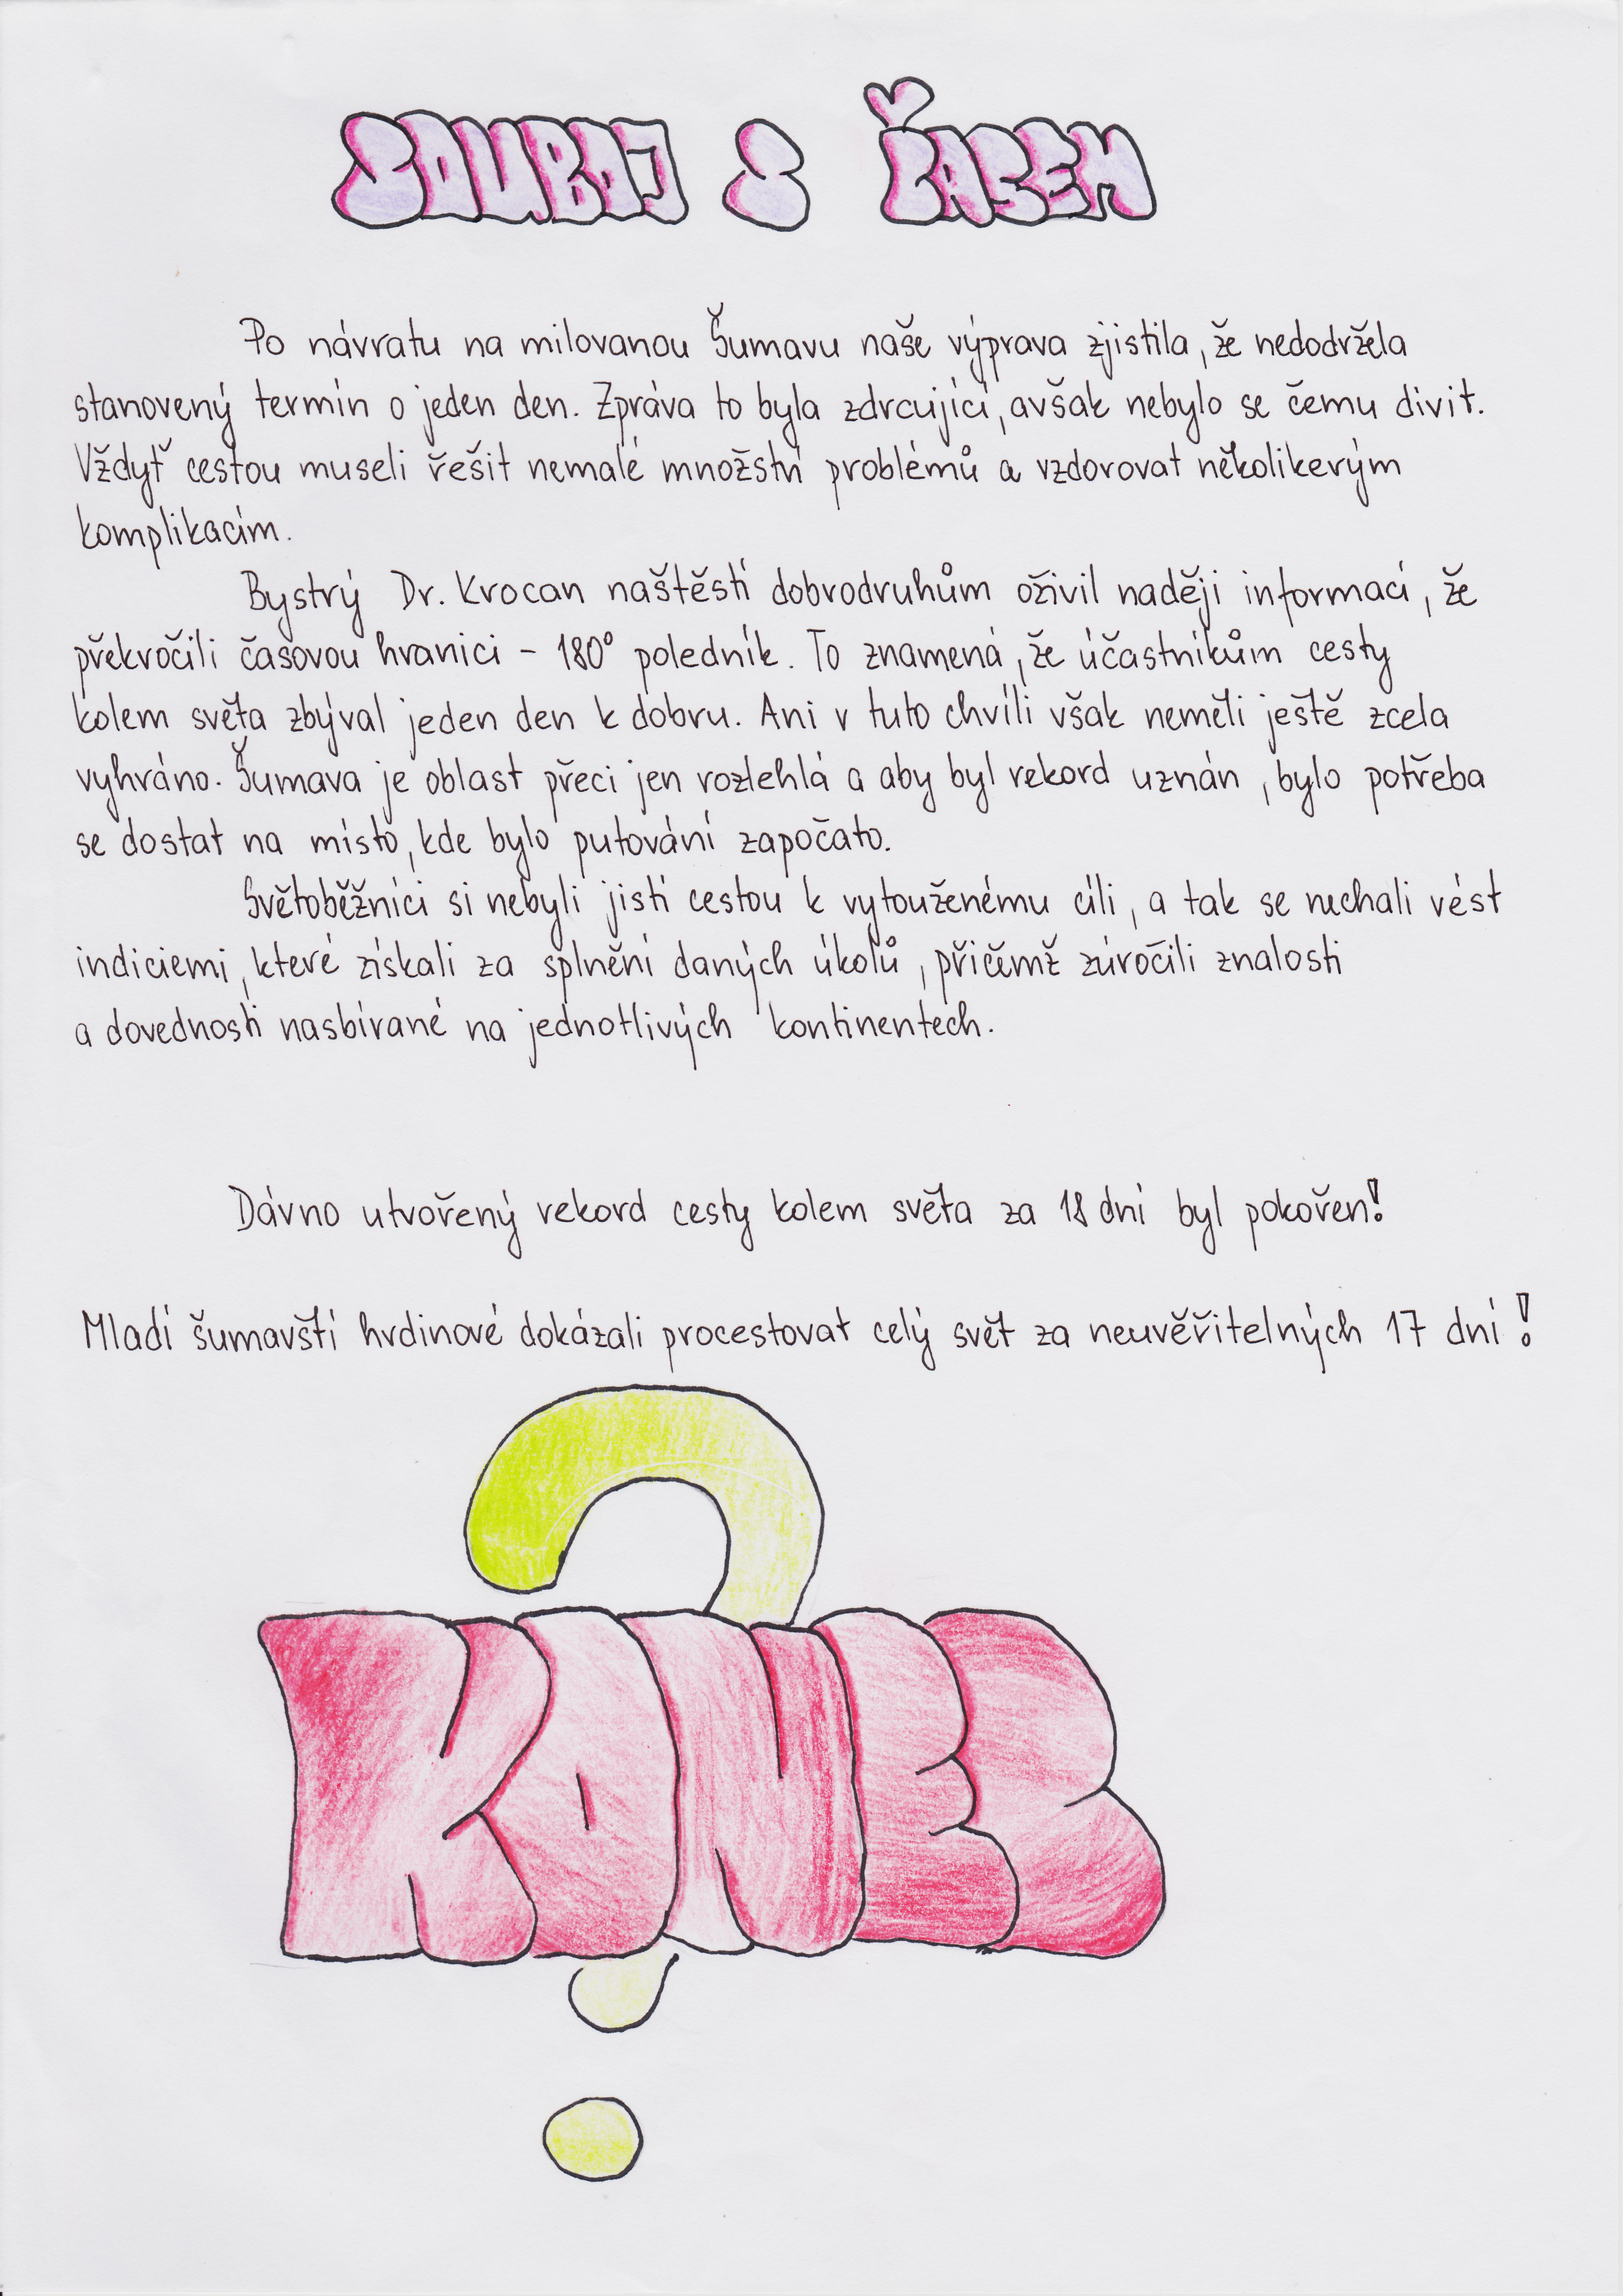 SOUBOJ S ČASEM
Po návratu na milovanou Šumavu naše výprava zjistila, že nedodržela
stanovený termín o jeden den. Zpráva to byla zdrcující, avšak nebylo se čemu divit.
Vždyť cestou museli řešit nemalé množství problémů a vzdorovat několikerým
komplikacím.
Bystrý Dr. Krocan naštěstí dobrodruhům oživil naději informací, že
překročili časovou hranici - 180° poledník. To znamená, že účastníkům cesty
kolem světa zbýval jeden den k dobru. Ani v tuto chvíli však neměli ještě zcela
vyhráno. Šumava je oblast přeci jen rozlehlá a aby byl rekord uznán, bylo potřeba
se dostat na místo, kde bylo putování započato.
Světoběžníci si nebyli jistí cestou k vytouženému cíli, a tak se nechali vést
indiciemi, které získali za splnění daných úkolů, přičemž zúročili znalosti
a dovednosti nasbírané na jednotlivých kontinentech.
Dávno utvořený rekord cesty kolem světa za 18 dní byl pokořen!
Mladí šumavští hrdinové dokázali procestovat celý svět za neuvěřitelných 17 dní!
?
KONEC